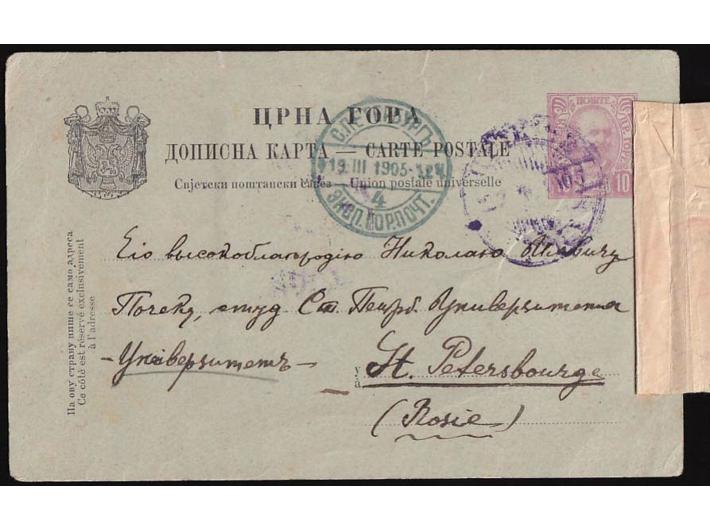 ЦРНА ГОРА
ДОПИСНА КАРТА — CARTE POSTALE
Свјетски поштански Савез — Union postale universelle
С.ПЕТЕРБУРГЪ
19 III 1905
4
ЭКСП.ГОР.ПОЧТ.
ПОШТЕ
10
Его высокоблагородію Николаю
студ. С. Петрб. Университета
Университетъ
у
à
St. Petersbourge
(Rosie)
На ову страну пише се само адреса
Ce côté est réservé exclusivement
à l'adresse